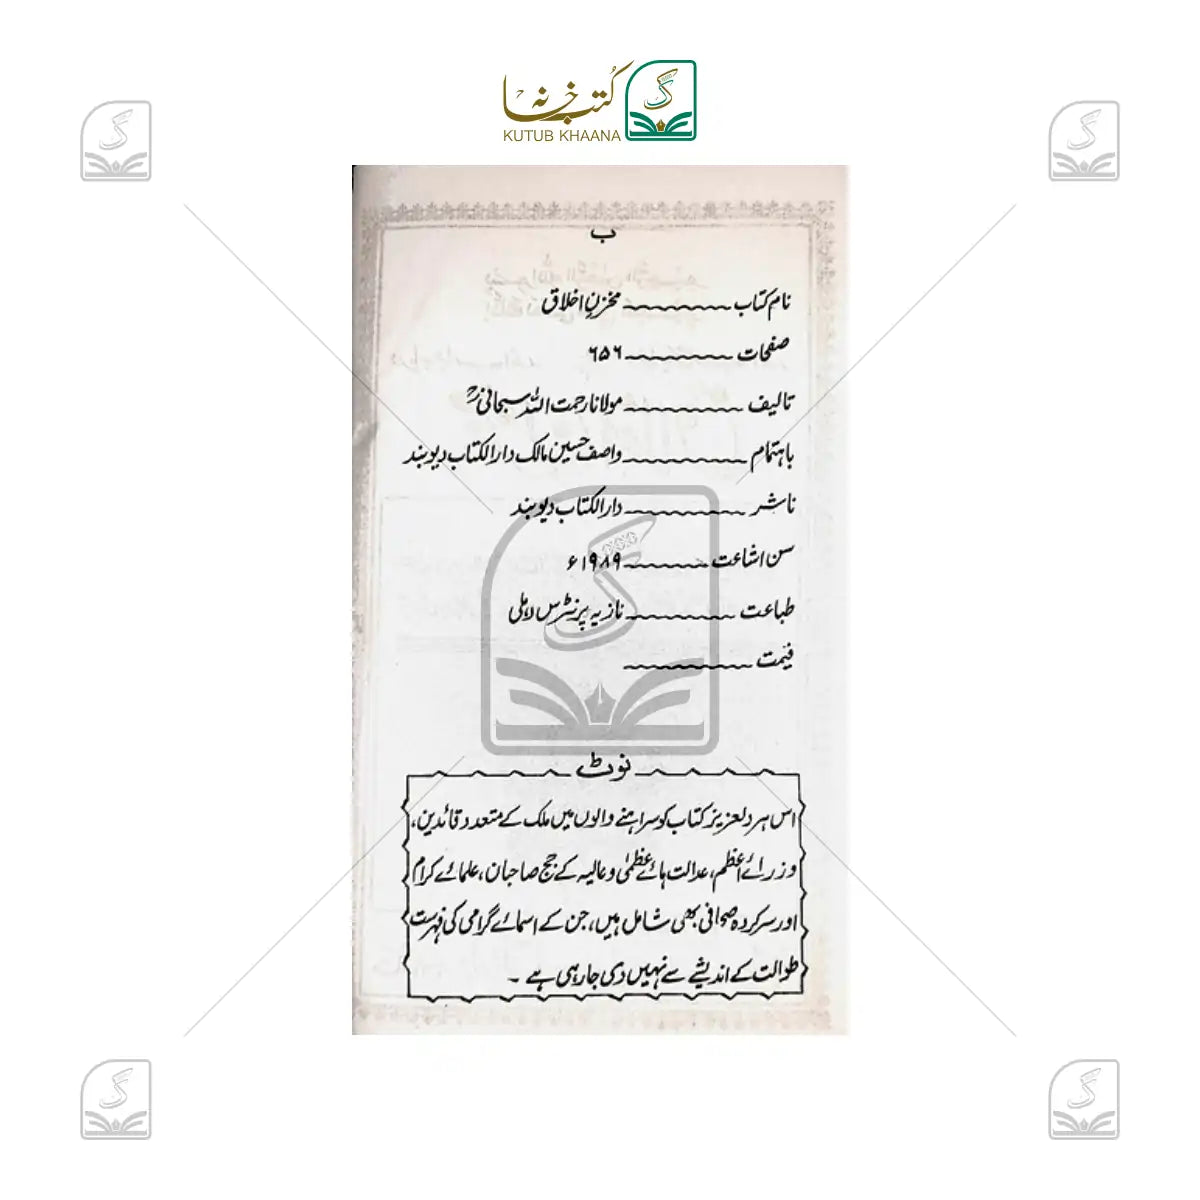 کتب خانہ
KUTUB KHAANA
ب
نام کتاب ــــــ مخزنِ اخلاق
صفحات ــــــ ۶۵۶
تالیف ــــــ مولانا رحمت اللہ سبحانی ؒ
باہتمام ــــــ واصف حسین مالک دارالکتاب دیوبند
ناشر ــــــ دارالکتاب دیوبند
سن اشاعت ــــــ ۱۹۸۹ء
طباعت ــــــ نازیہ پرنٹرس دہلی
قیمت ــــــ
نوٹ
اس ہردلعزیز کتاب کو سراہنے والوں میں ملک کے متعدد قائدین،
وزرائے اعظم، عدالت ہائے عظمیٰ و عالیہ کے جج صاحبان، علمائے کرام
اور سرکردہ صحافی بھی شامل ہیں، جن کے اسمائے گرامی کی فہرست
طوالت کے اندیشے سے نہیں دی جا رہی ہے ۔